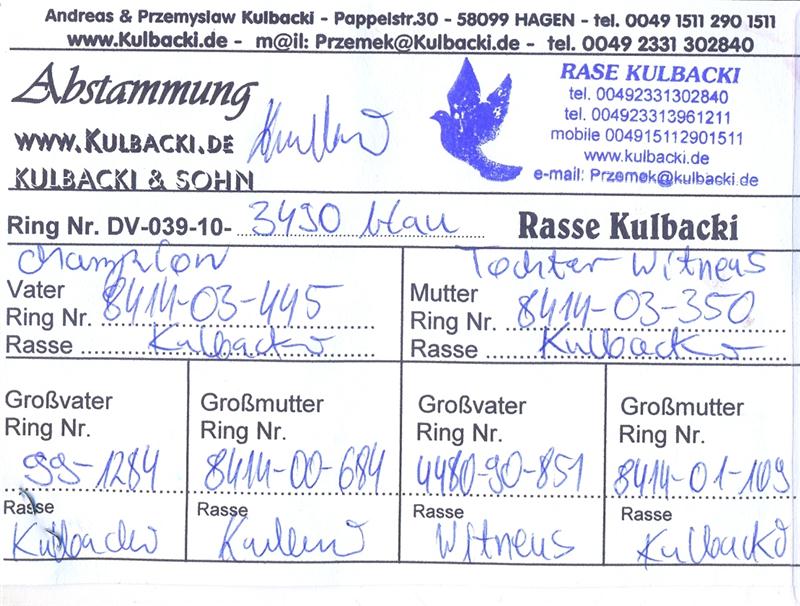 Andreas & Przemyslaw Kulbacki - Pappelstr.30 - 58099 HAGEN - tel. 0049 1511 290 1511
www.Kulbacki.de - m@il: Przemek@Kulbacki.de - tel. 0049 2331 302840
Abstammung
www.Kulbacki.de
KULBACKI & SOHN
RASE KULBACKI
tel. 00492331302840
tel. 004923313961211
mobile 004915112901511
www.kulbacki.de
e-mail: Przemek@kulbacki.de
Ring Nr. DV-039-10- 3490 blau Rasse Kulbacki
Champion
Vater
Ring Nr. 8414-03-445
Rasse Kulbacki
Tochter Witneus
Mutter
Ring Nr. 8414-03-350
Rasse Kulbacki
Großvater
Ring Nr.
99-1284
Rasse
Kulbacki
Großmutter
Ring Nr.
8414-00-684
Rasse
Großvater
Ring Nr.
4480-90-851
Rasse
Witneus
Großmutter
Ring Nr.
8414-01-109
Rasse
Kulbacki